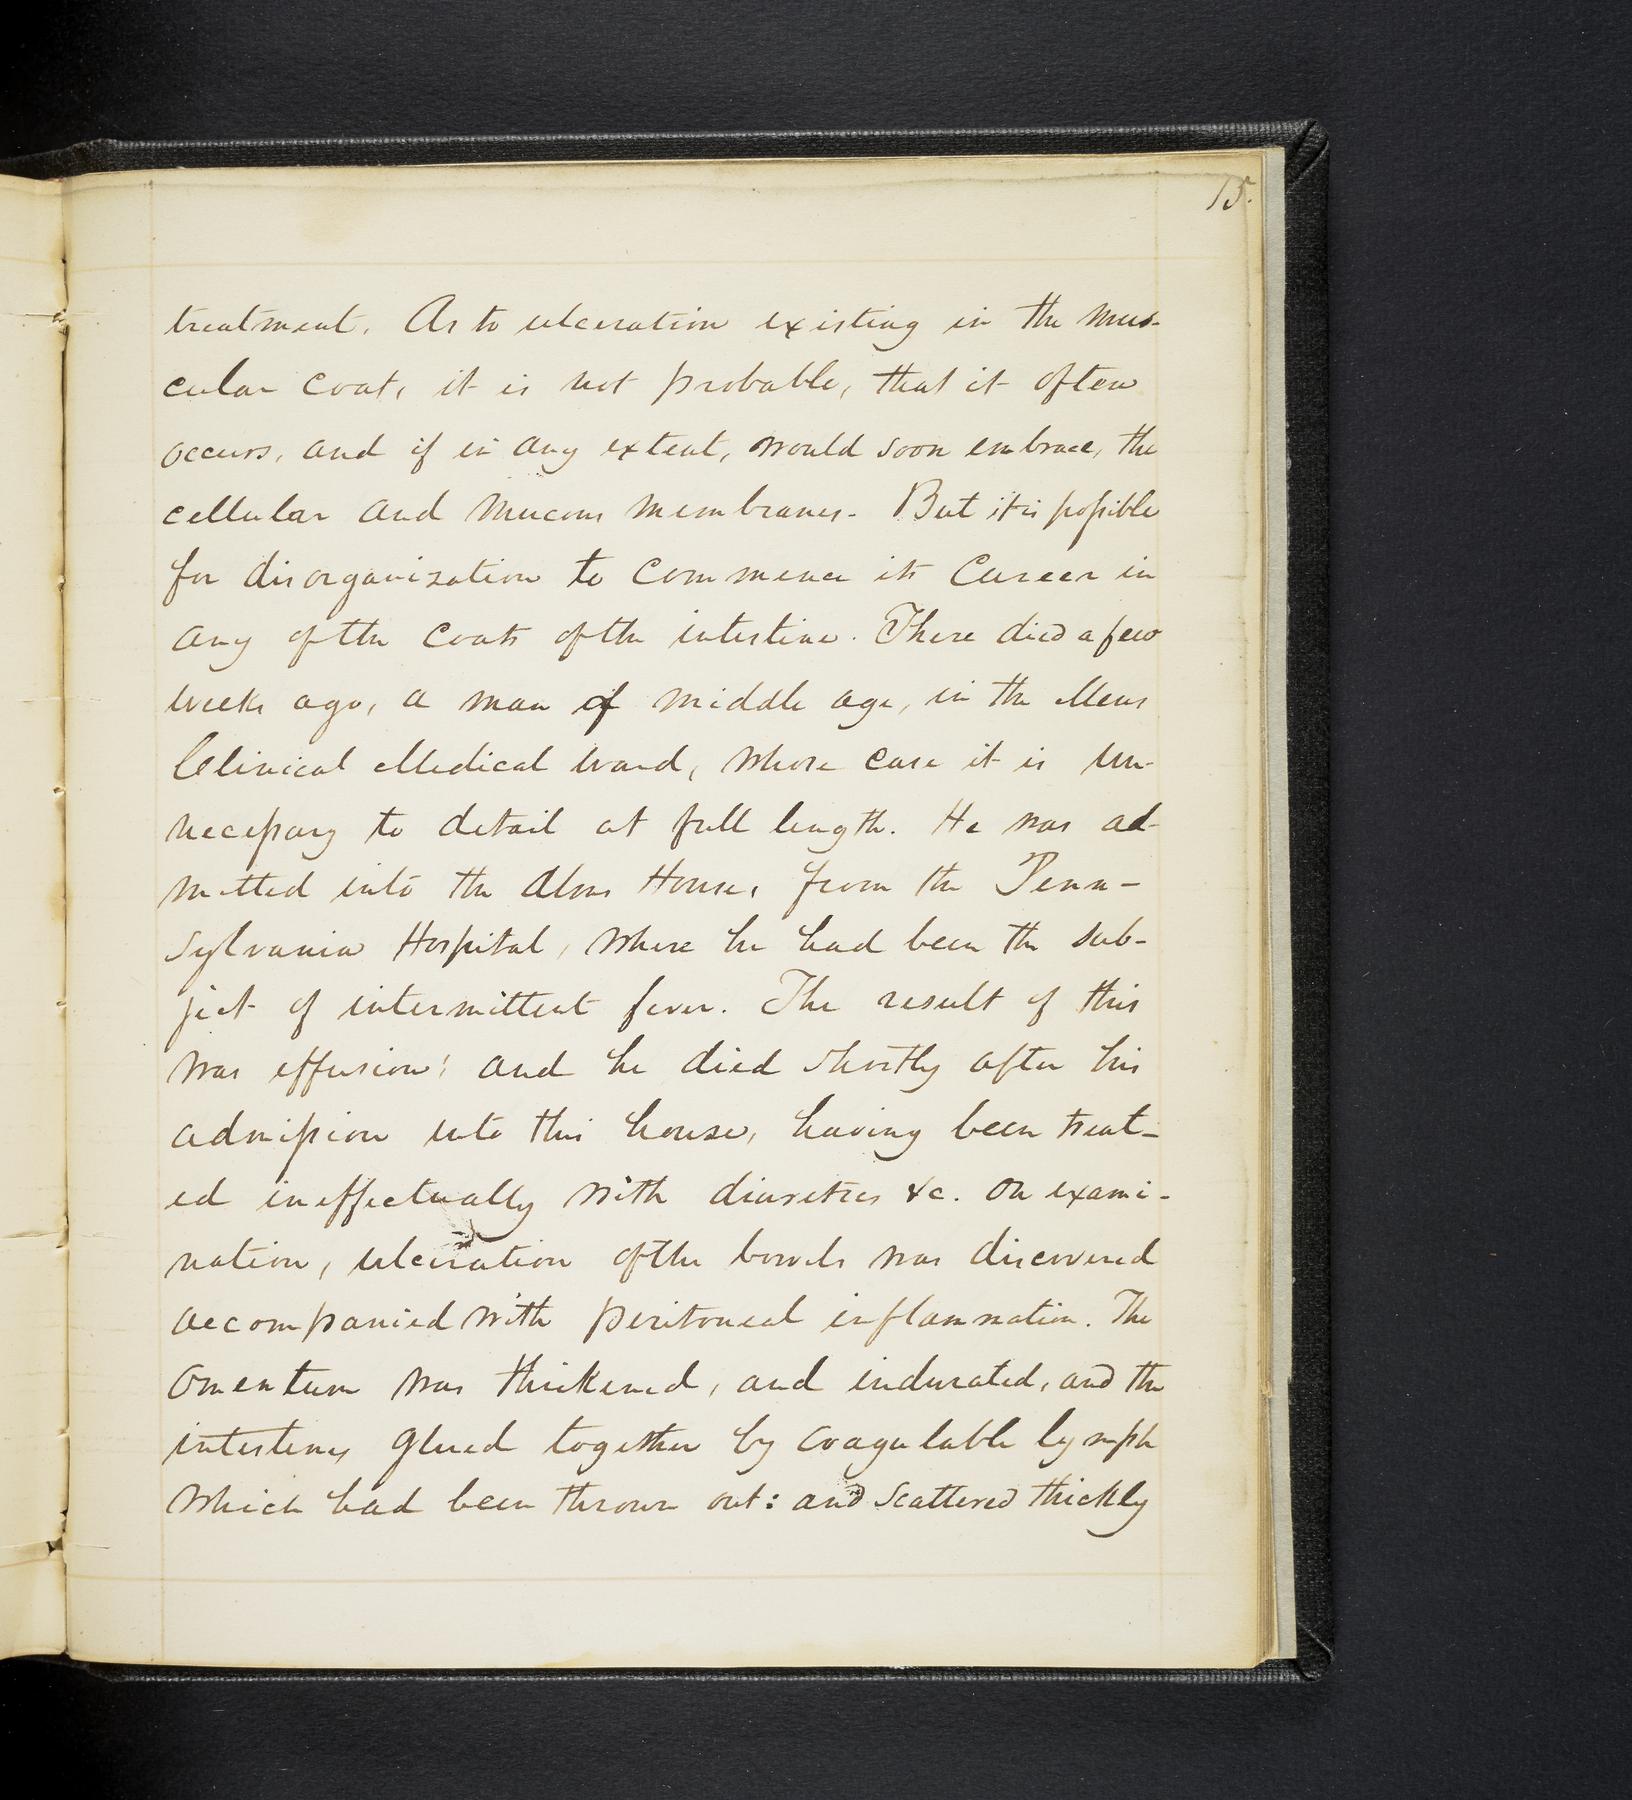 15.
treatment. As to ulceration existing in the mus-
cular coat, it is not probable, that it often
occurs, and if in any extent, would soon embrace, the
cellular and mucous membranes. But it is possible
for disorganization to commence its career in
any of the coats of the intestine. There died a few
weeks ago, a man of middle age, in the Mens
Clinical Medical ward, whose case it is un-
necessary to detail at full length. He was ad-
mitted into the Alms House, from the Penn-
sylvania Hospital, where he had been the sub-
ject of intermittent fever. The result of this
was effusion; and he died shortly after his
admission into this house, having been treat-
ed ineffectually with diuretics &c. On exami-
nation, ulceration of the bowels was discovered
accompanied with peritoneal inflammation. The
omentum was thickened, and indurated, and the
intestines glued together by coagulable lymph
which had been thrown out: and scattered thickly